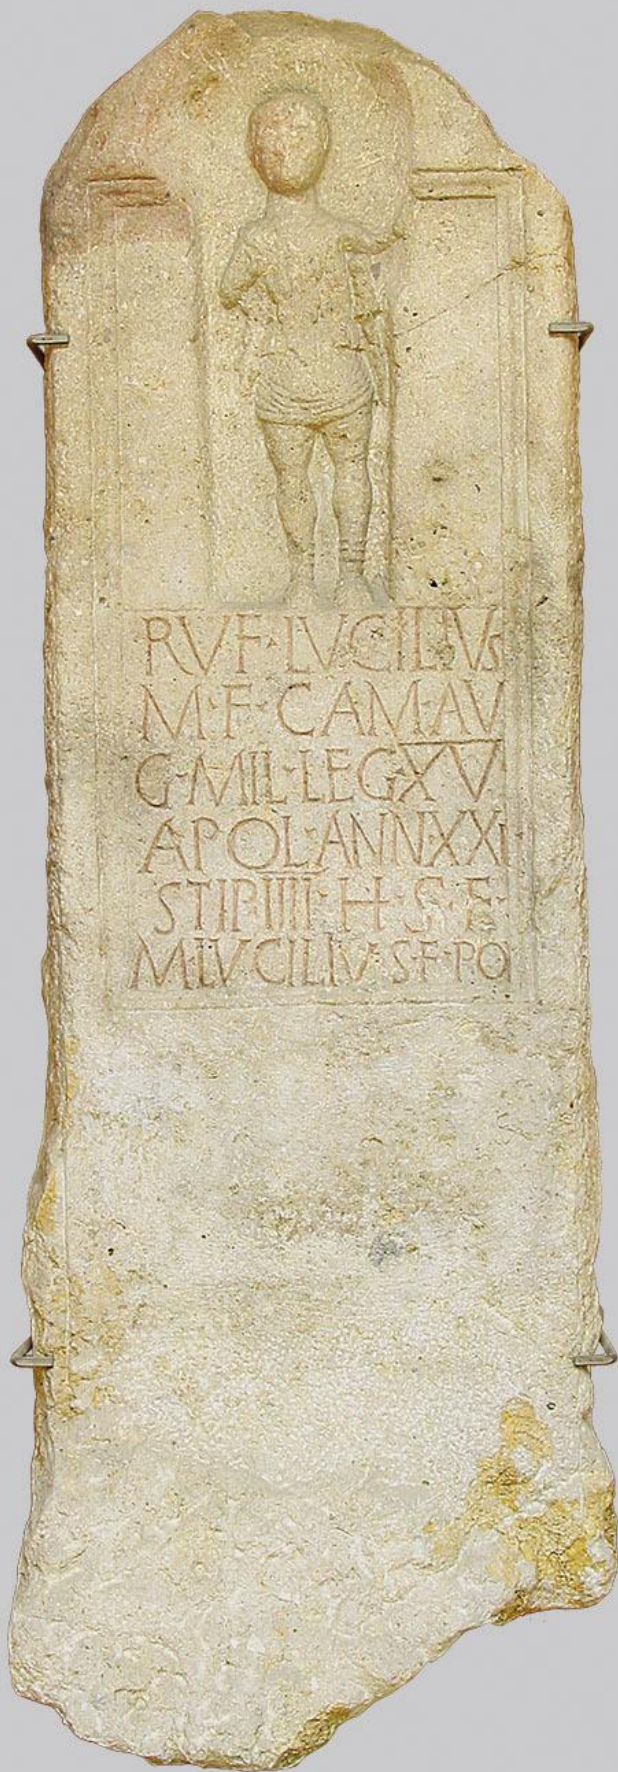 RVF·LVCILIVS
M·F·CAM·AV
G·MIL·LEG·XV
APOL·ANNXXI
STIP·IIII·H·S·E·
M·LVCILIV·S·F·PO